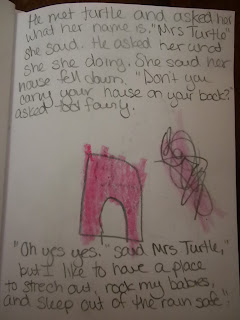 He met turtle and asked her
what her name is. "Mrs Turtle"
she said. He asked her what
she she doing. She said her
house fell down. "Don't you
carry your house on your back?"
asked tod fainly.
"Oh yes yes." said Mrs Turtle,"
but I like to have a place
to strech out, rock my babies,
and sleep out of the rain safe."